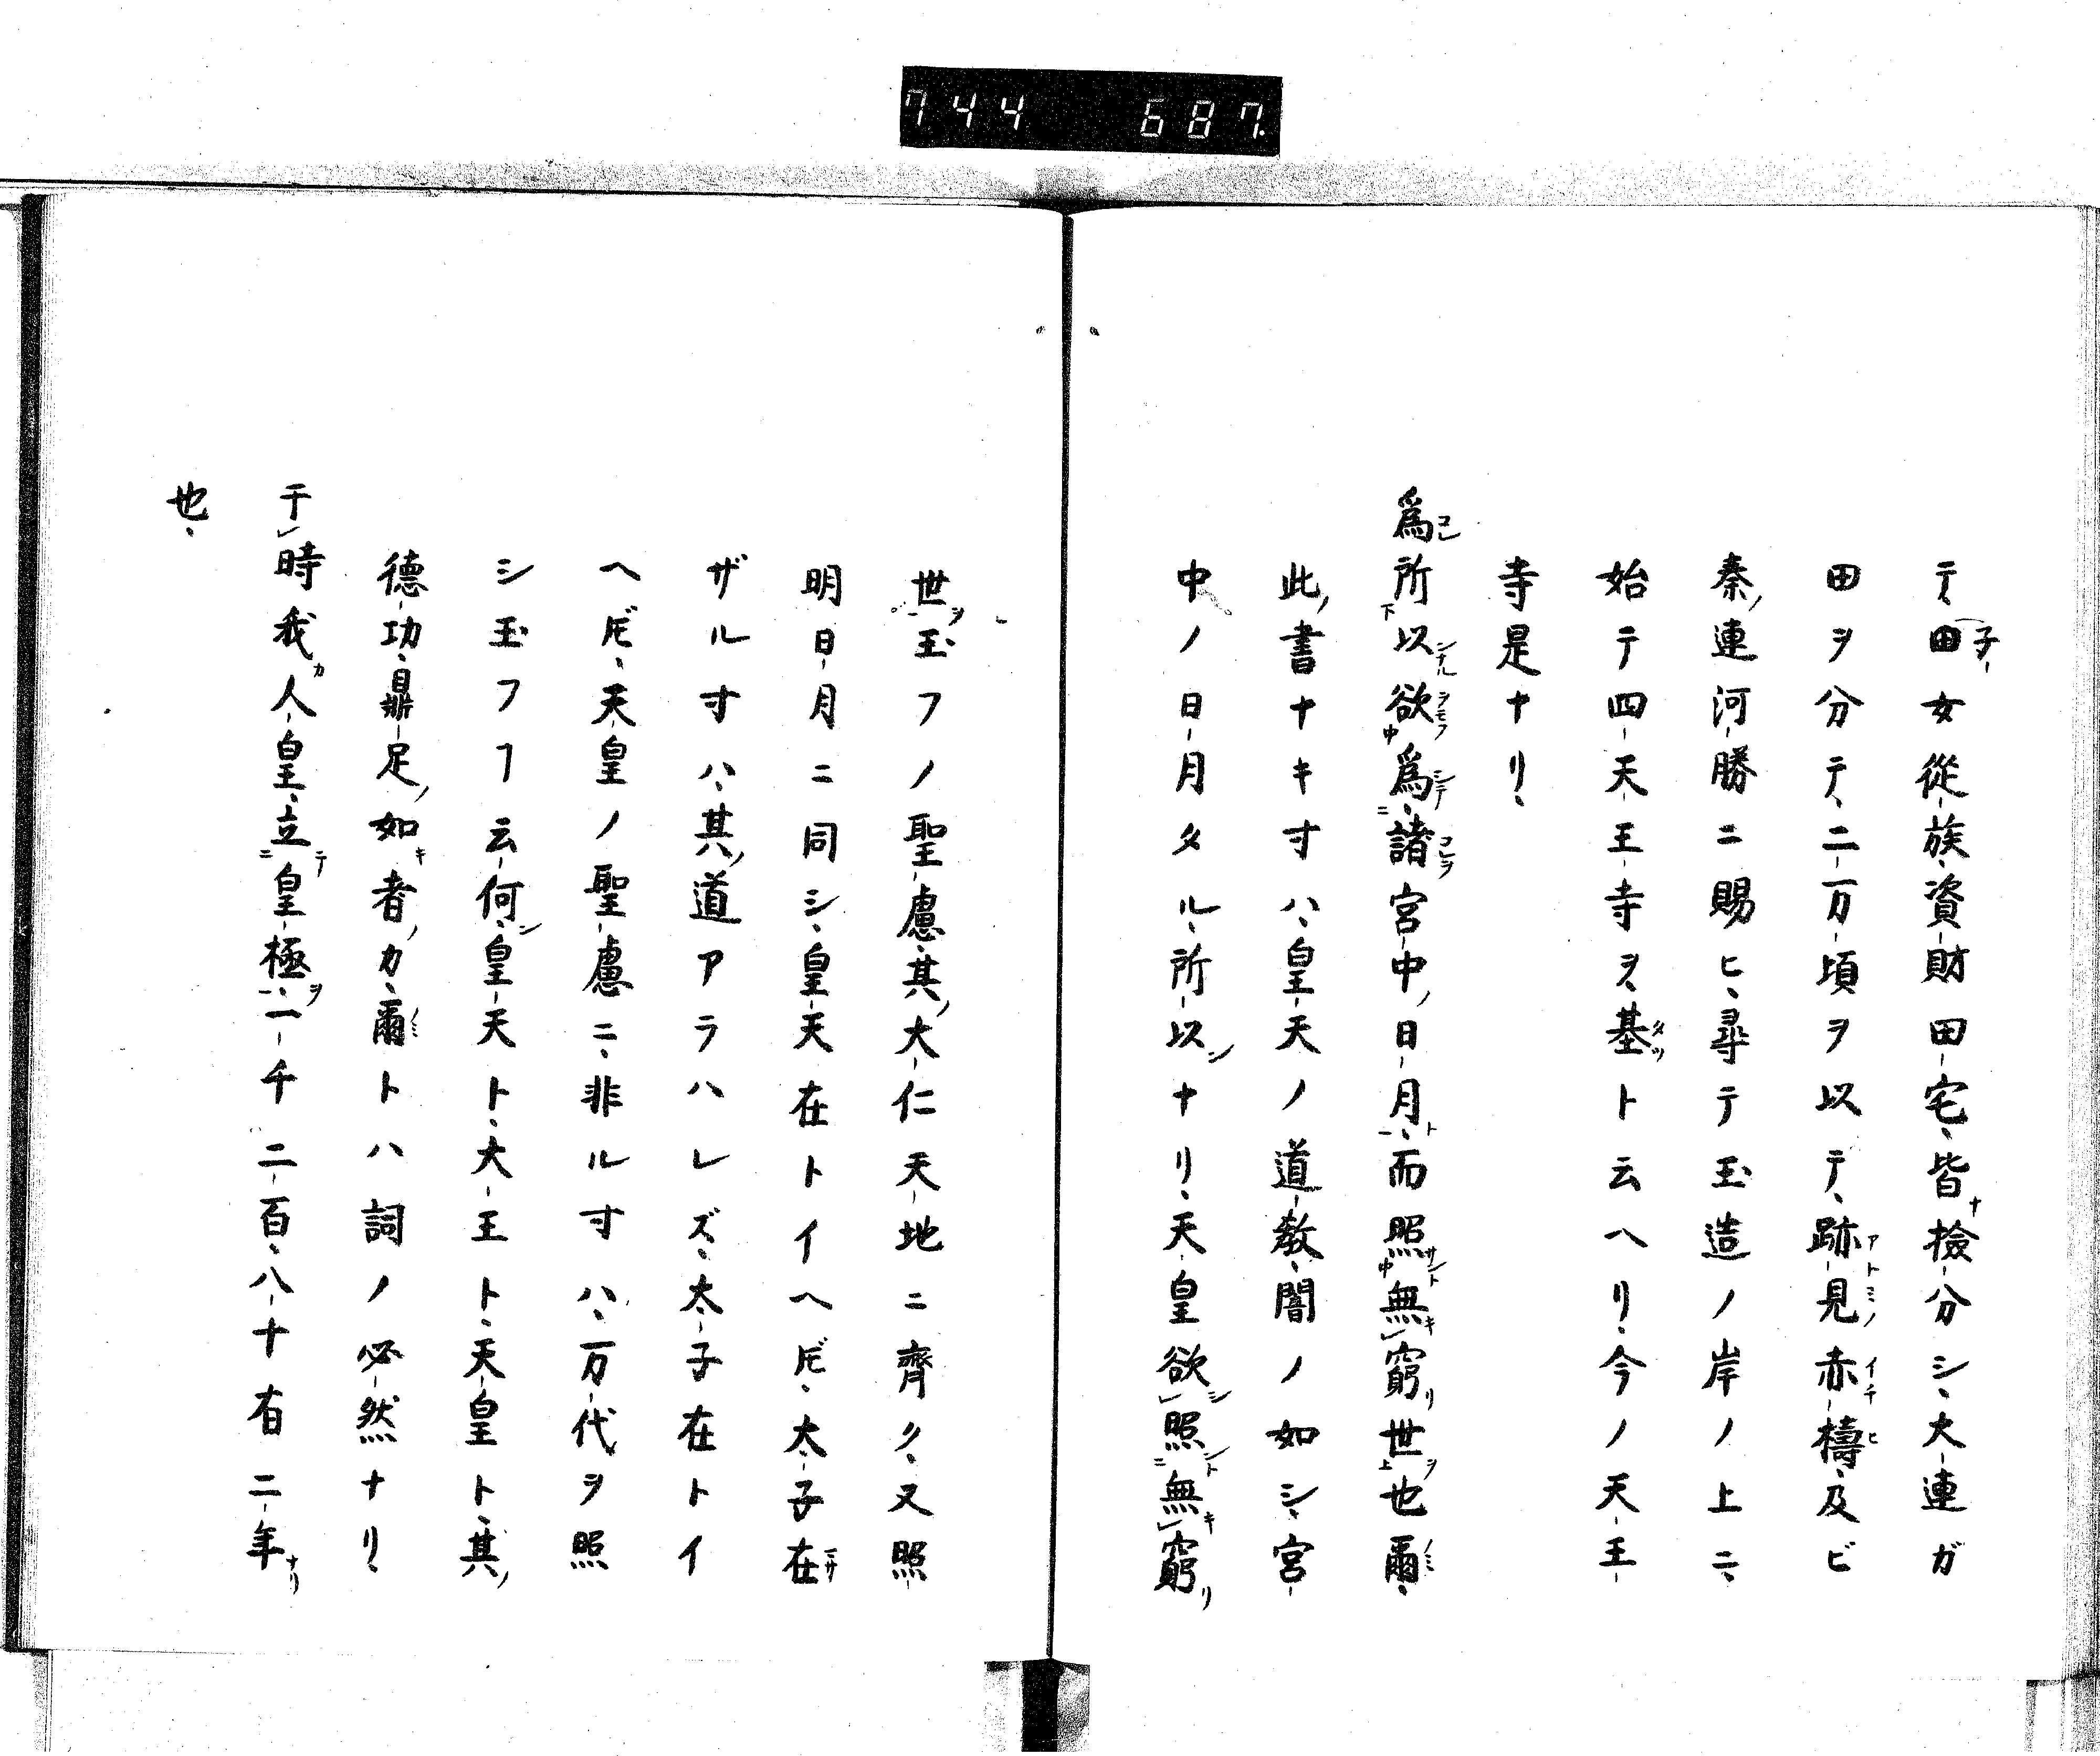 744 687.
テ、子女從族、資財田宅、皆檢分シ、大連ガ
田ヲ分テ、二万頃ヲ以テ、跡見赤檮、及ビ
秦ノ連河勝ニ賜ヒ、尋テ玉造ノ岸ノ上ニ、
始テ四天王寺ヲ、基ト云ヘリ、今ノ天王
寺是ナリ、
爲所以欲爲、諸宮中ノ日月、而照無窮世也爾、
此ノ書ナキ寸ハ、皇天ノ道教、闇ノ如シ、宮
中ノ日月タル、所以ナリ、天皇欲照無窮
世玉フノ聖慮、其ノ大仁天地ニ齊ク、又照
明日月ニ同シ、皇天在トイヘ𪜈、太子在
ザル寸ハ、其ノ道アラハレズ、太子在トイ
ヘ𪜈、天皇ノ聖慮ニ、非ル寸ハ、万代ヲ照
シ玉フヿ云何、皇天ト、大王ト、天皇ト、其ノ
德功、鼎足ノ如キ者ノカ、爾トハ詞ノ必然ナリ、
于時我人皇、立皇極、一千二百、八十有二年
也、